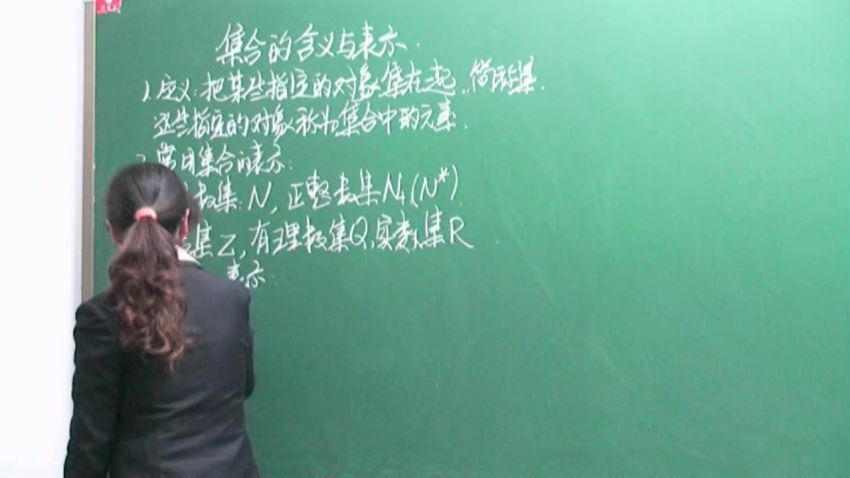 集合的含义与表示.
1.定义:把某些指定的对象集在一起..简称集.
这些指定的对象称为集合中的元素.
2.常用集合的表示:
数集:N,正整数集N+(N*)
集Z,有理数集Q,实数集R
表示: